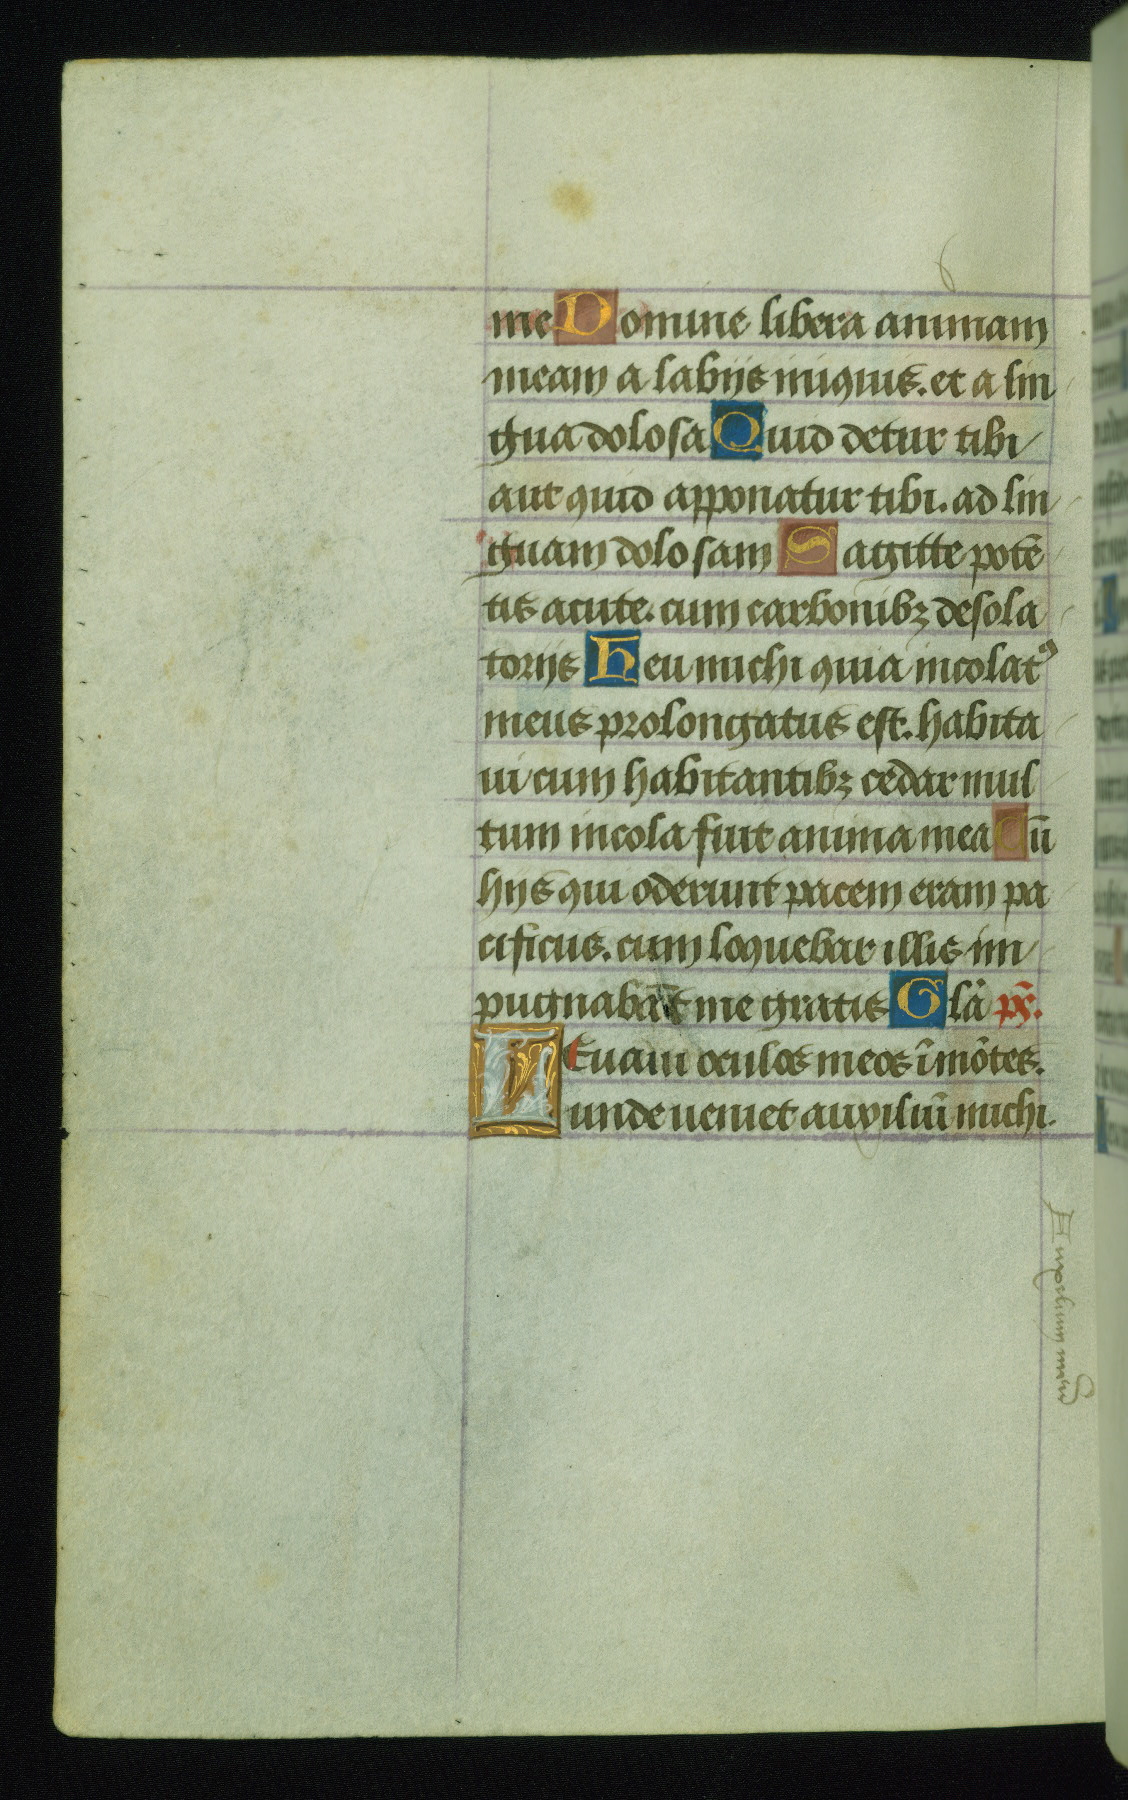 me Domine libera animam
meam a labijs iniquis. et a lin
gua dolosa Quid detur tibi
aut quid apponatur tibi. ad lin
guam dolosam Sagitte potē
tis acute. cum carbonibꝫ desola
torijs Heu michi quia incolatꝰ
meus prolongatus est. habita
ui cum habitantibꝫ cedar mul
tum incola fuit anima mea Cū
hijs qui oderunt pacem eram pa
cificus. cum loquebar illis im
pugnabāt me gratis Glā pš.
Leuaui oculos meos ī mōtes.
unde ueniet auxiliū michi.